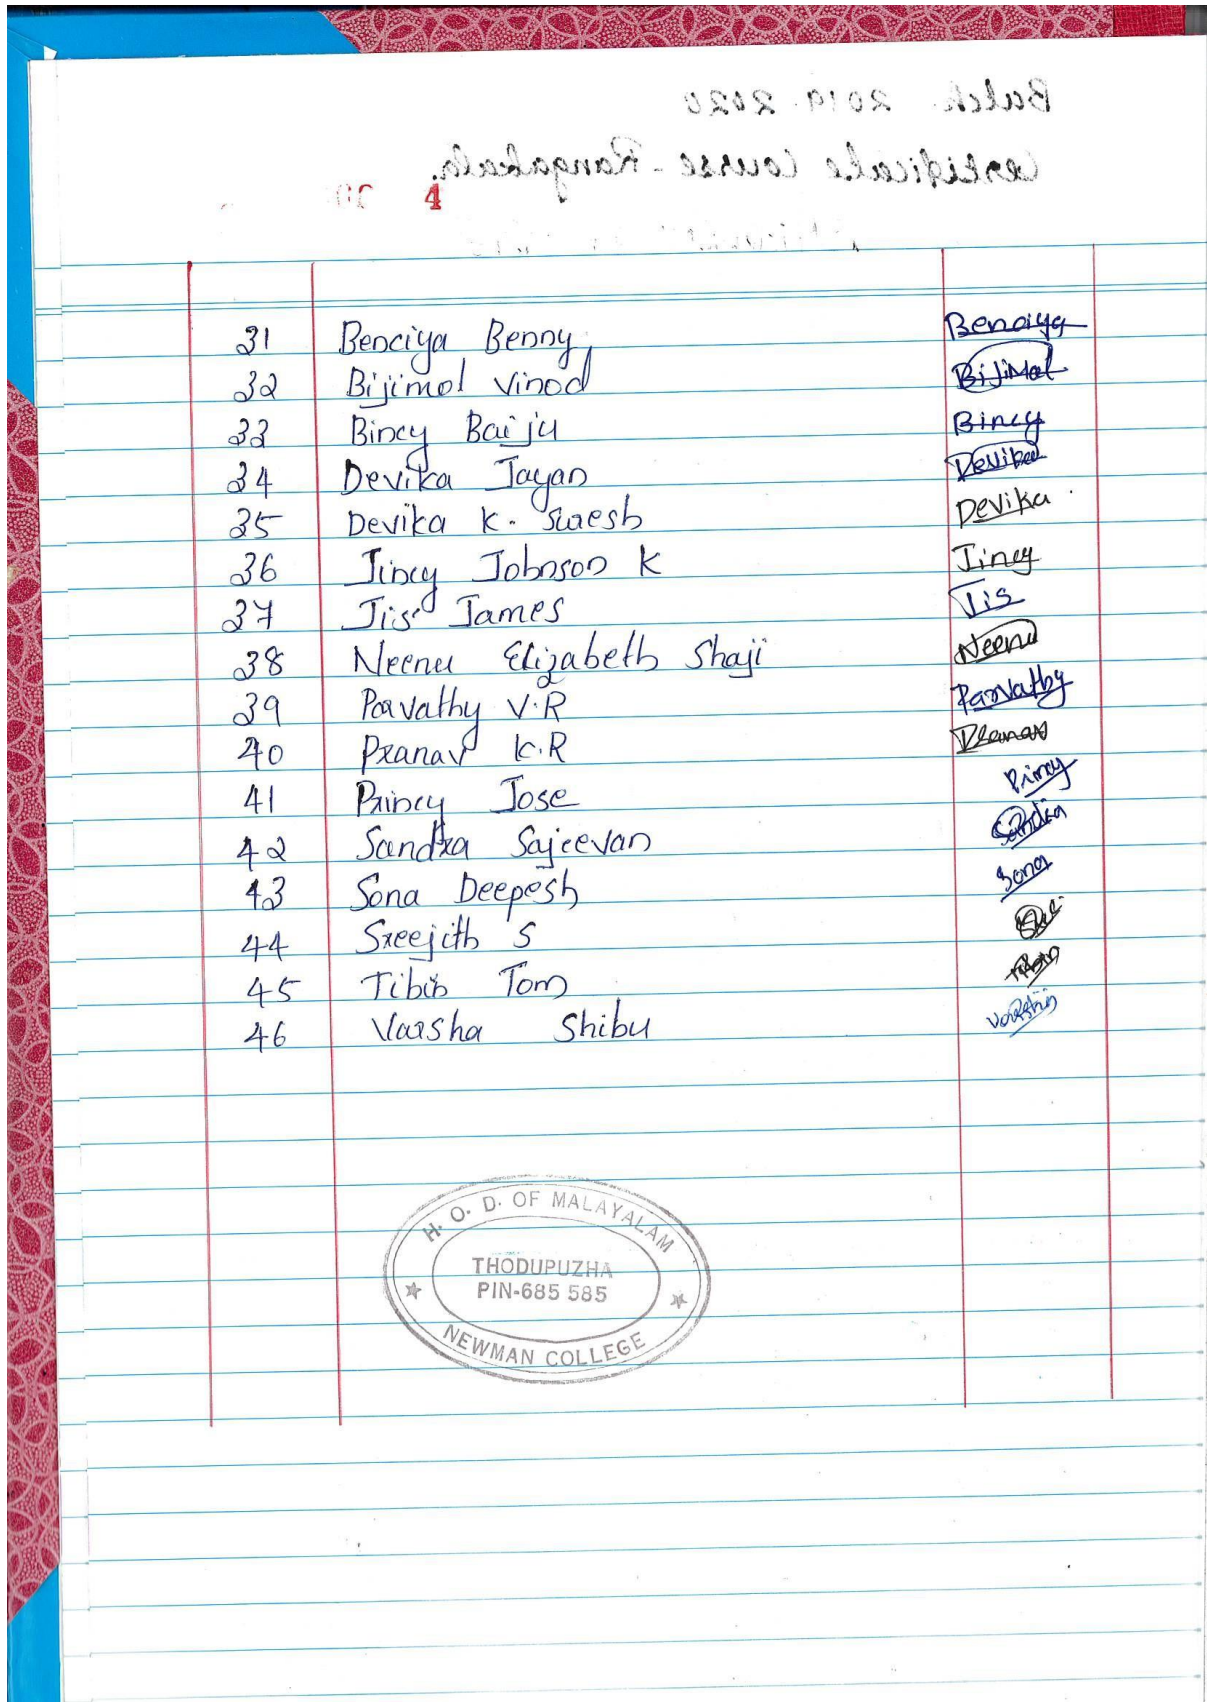 Batch 2019-2020
Certificate Course - Rangakala.
4
31 Benciya Benny Benciya
32 Bijimol Vinod Bijimol
33 Bincy Baiju Bincy
34 Devika Jayan Devika
35 Devika K. Suresh Devika
36 Jincy Johnson K Jincy
37 Jis James Jis
38 Neenu Elizabeth Shaji Neenu
39 Parvathy V.R Parvathy
40 Pranav K.R Pranav
41 Princy Jose Princy
42 Sandra Sajeevan Sandra
43 Sona Deepesh Sona
44 Sreejith S
45 Tibin Tom
46 Varsha Shibu
H. O. D. OF MALAYALAM
THODUPUZHA
PIN-685 585
NEWMAN COLLEGE